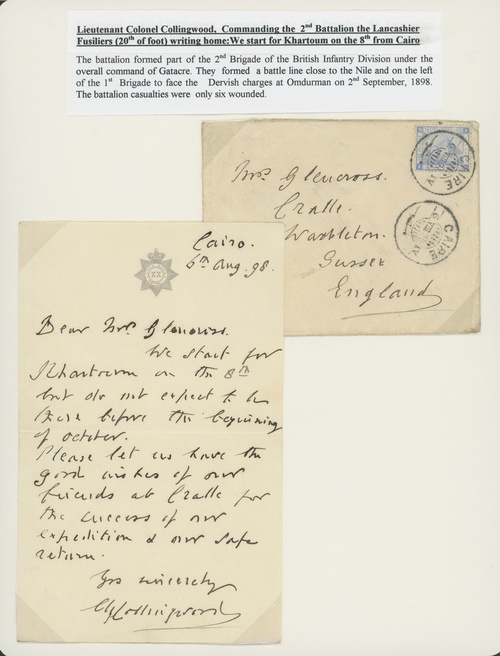 Lieutenant Colonel Collingwood, Commanding the 2nd Battalion the Lancashier
Fusiliers (20th of foot) writing home:We start for Khartoum on the 8th from Cairo
The battalion formed part of the 2nd Brigade of the British Infantry Division under the
overall command of Gatacre. They formed a battle line close to the Nile and on the left
of the 1st Brigade to face the Dervish charges at Omdurman on 2nd September, 1898.
The battalion casualties were only six wounded.
CAIRE
CAIRE
Mrs Glencross.
Cralle.
Warbleton.
Sussex
England
Cairo.
6th Aug. 98.
XX
Dear Mrs Glencross.
We start for
Khartoum on the 8th
but do not expect to be
there before the beginning
of October.
Please let us have the
good wishes of our
friends at Cralle for
the success of our
expedition & our safe
return.
Yrs sincerely
Collingwood